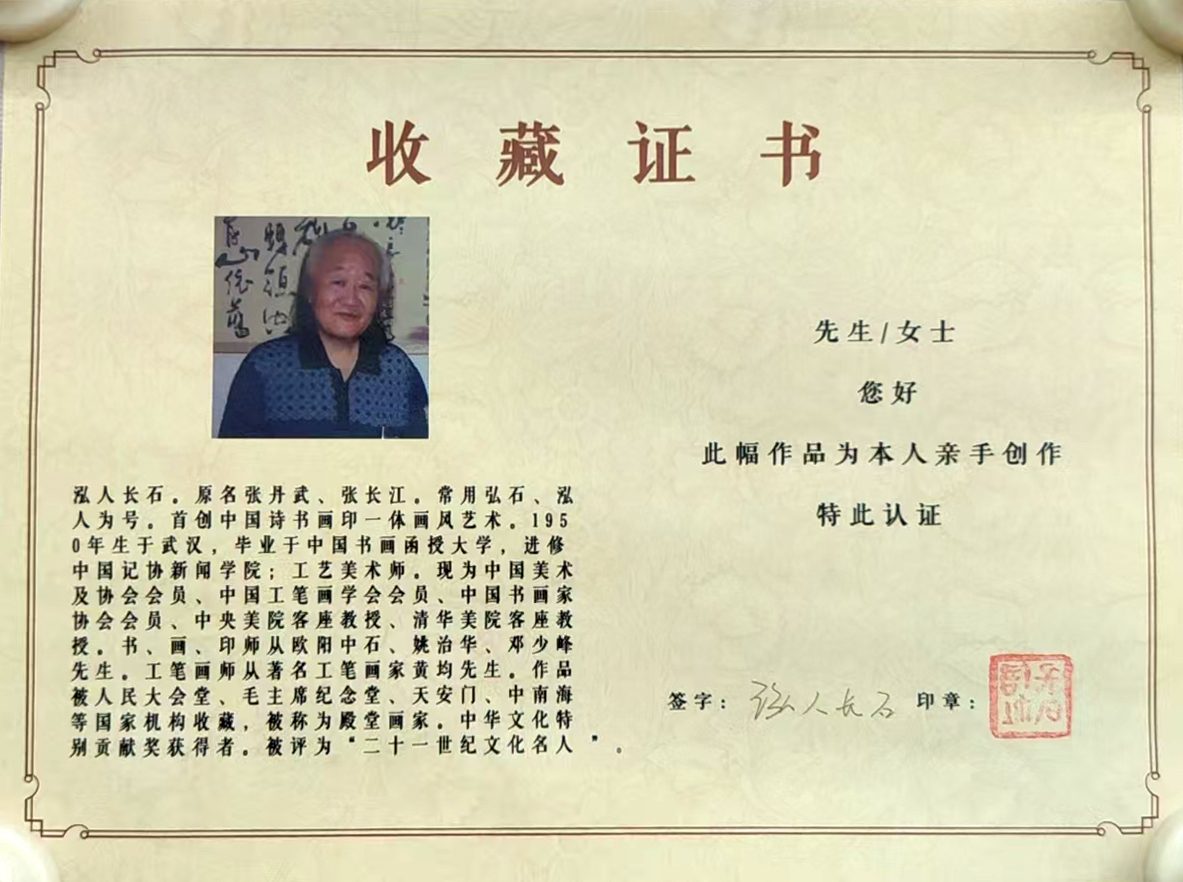 收藏证书
泓人长石。原名张丹武、张长江。常用弘石、泓
人为号。首创中国诗书画印一体画风艺术。195
0年生于武汉，毕业于中国书画函授大学，进修
中国记协新闻学院；工艺美术师。现为中国美术
及协会会员、中国工笔画学会会员、中国书画家
协会会员、中央美院客座教授、清华美院客座教
授。书、画、印师从欧阳中石、姚治华、邓少峰
先生。工笔画师从著名工笔画家黄均先生。作品
被人民大会堂、毛主席纪念堂、天安门、中南海
等国家机构收藏，被称为殿堂画家。中华文化特
别贡献奖获得者。被评为“二十一世纪文化名人”。
先生/女士
您好
此幅作品为本人亲手创作
特此认证
签字：泓人长石 印章：